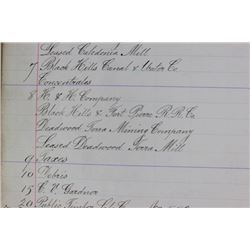 Leased Caledonia Mill
7 Black Hills Canal & Water Co.
Concentrates
8 H. & H. Company
Black Hills & Fort Pierre R.R. Co.
Deadwood Terra Mining Company
Leased Deadwood Terra Mill
9 Taxes
10 Debris
15 C. V. Gardner
20 Public